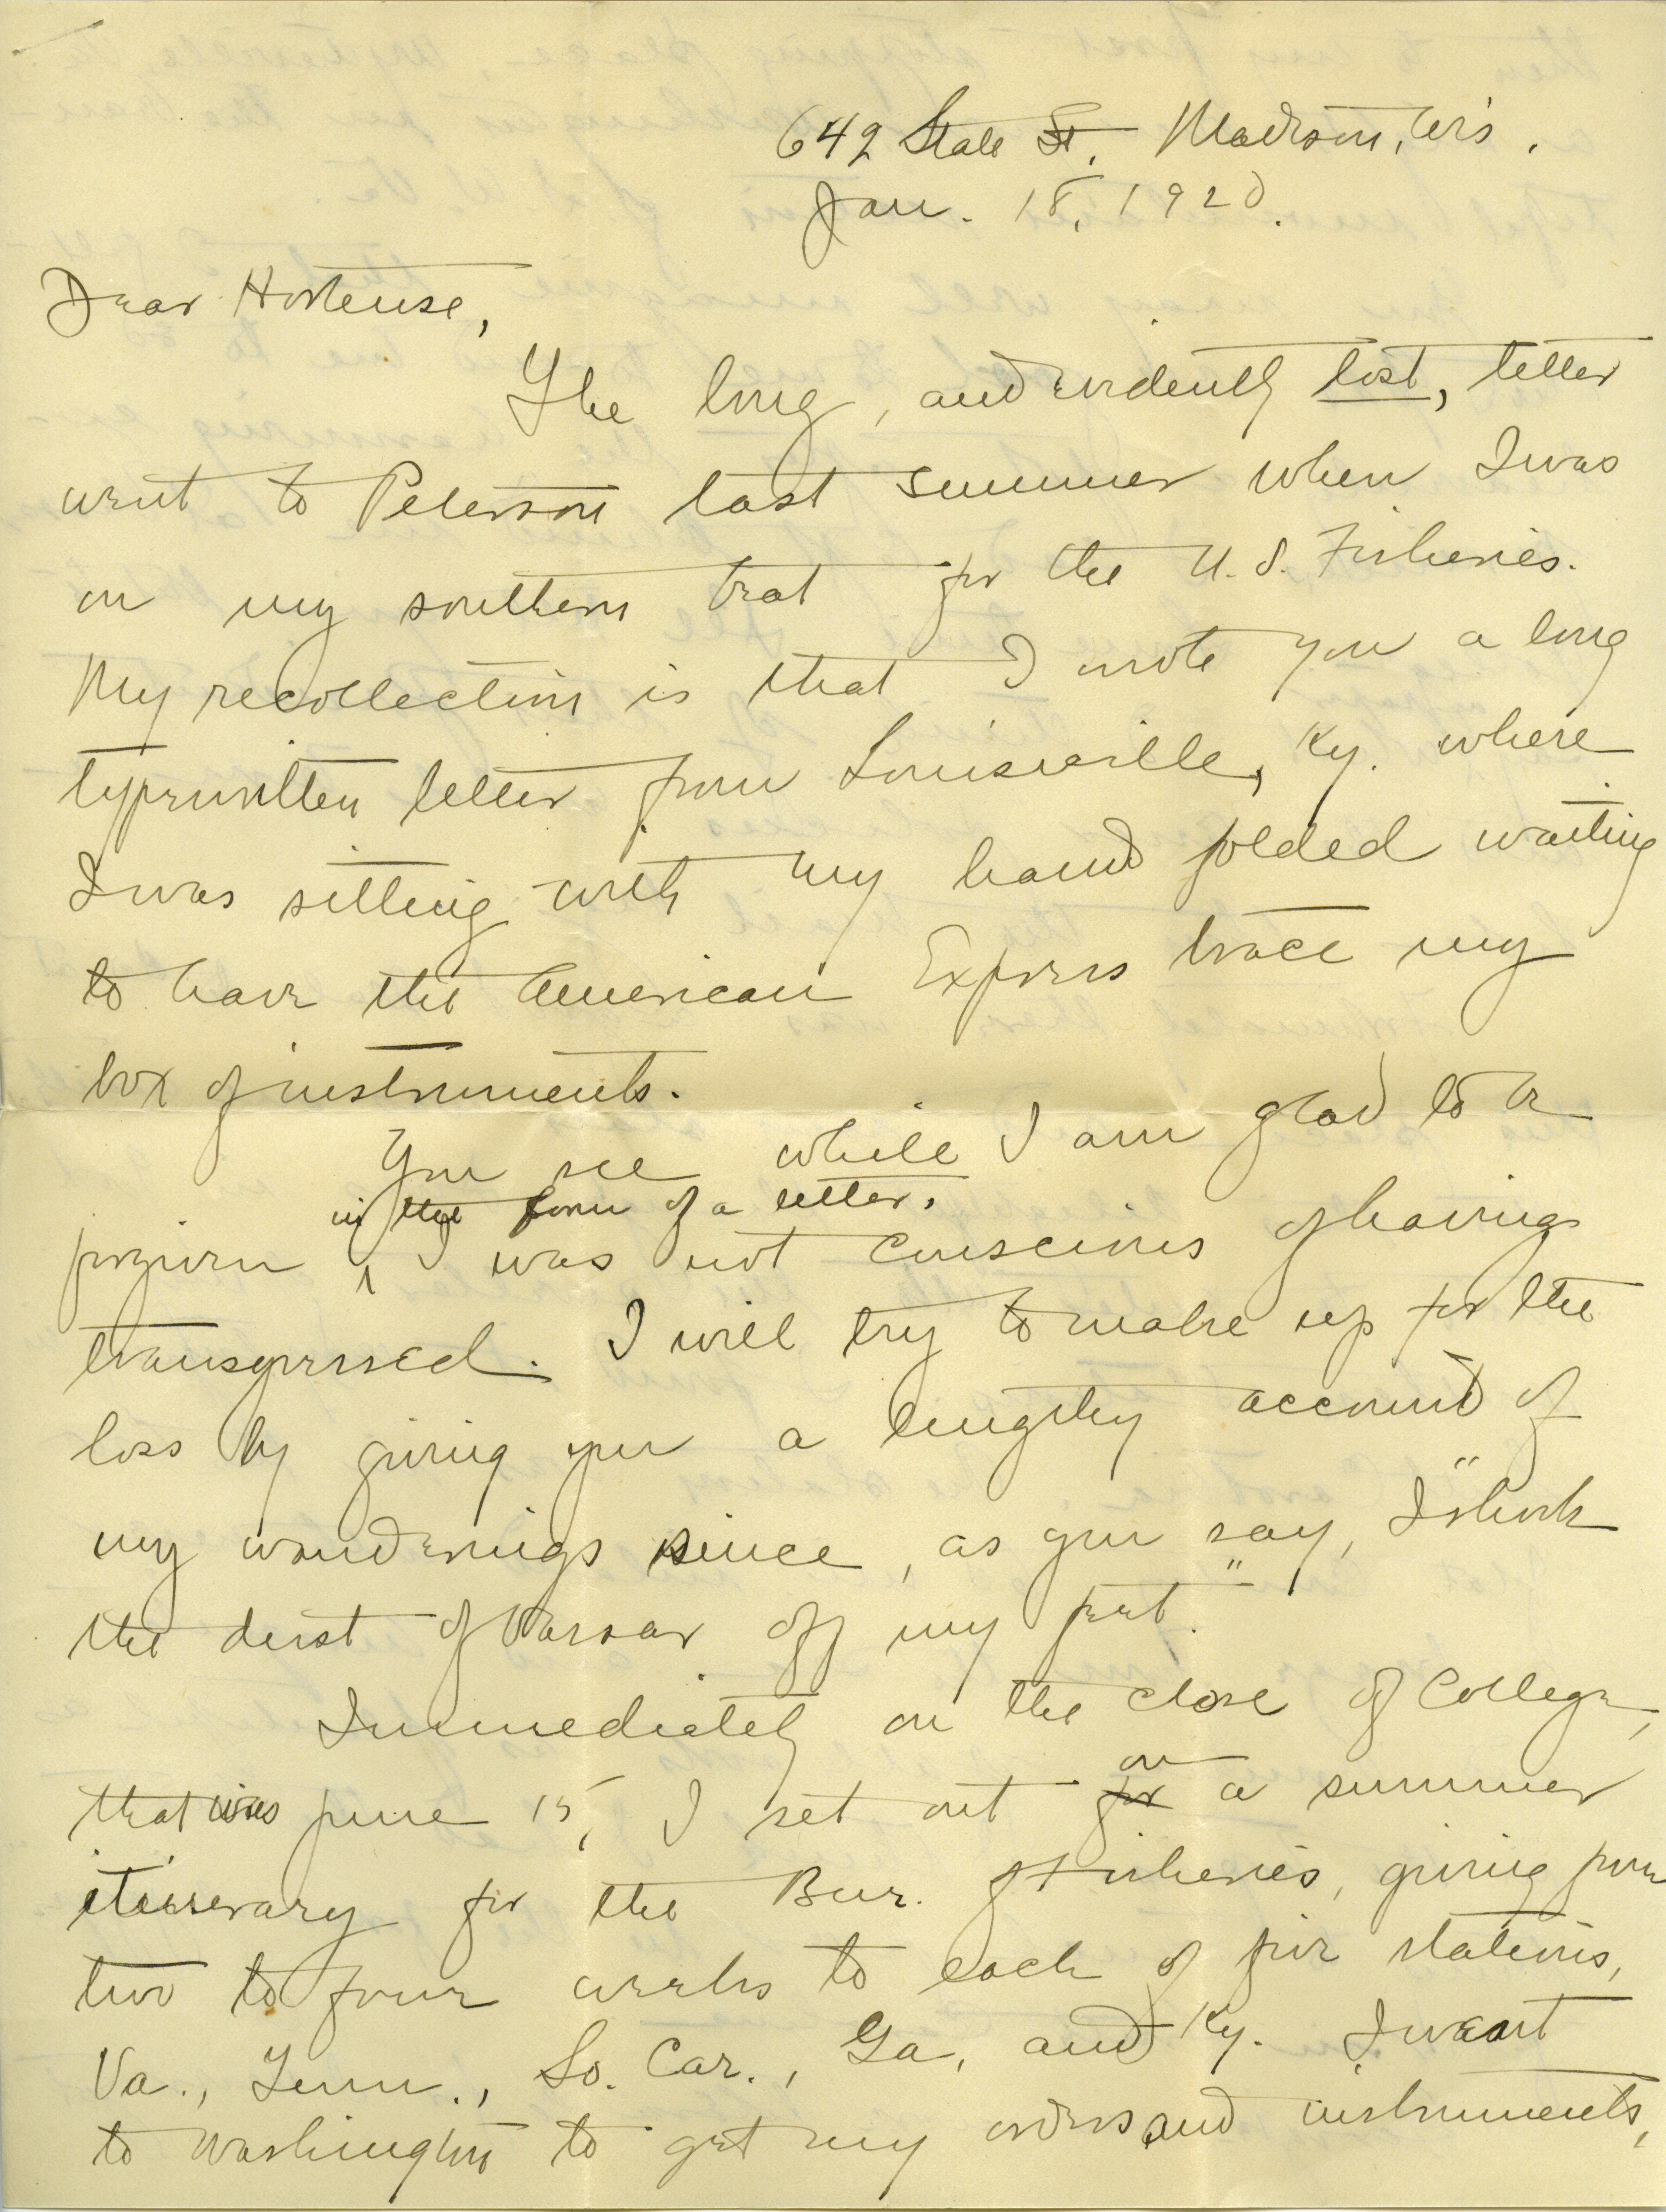 642 State St. Madison, Wis.
Jan. 18, 1920.
Dear Hortense,
The long, and evidently lost, letter
went to Peterson last summer when I was
on my southern trat for the U.S. Fisheries.
My recollection is that I wrote you a long
typewritten letter from Louisville, Ky. where
I was sitting with my hand folded waiting
to have the American Express trace my
box of instruments.
You see while I am glad to be
in the form of a letter,
forgiven ^ I was not conscious of having
transgressed. I will try to make up for the
loss by giving you a lengthy account of
my wanderings since, as you say, "I shook
the dust of Vassar off my feet."
Immediately on the close of College,
on
that was June 15, I set out for a summer
itinerary for the Bur. of Fisheries, giving from
two to four weeks to each of five stations,
Va., Tenn., So. Car., Ga, and Ky. I went
to Washington to get my orders and instruments,